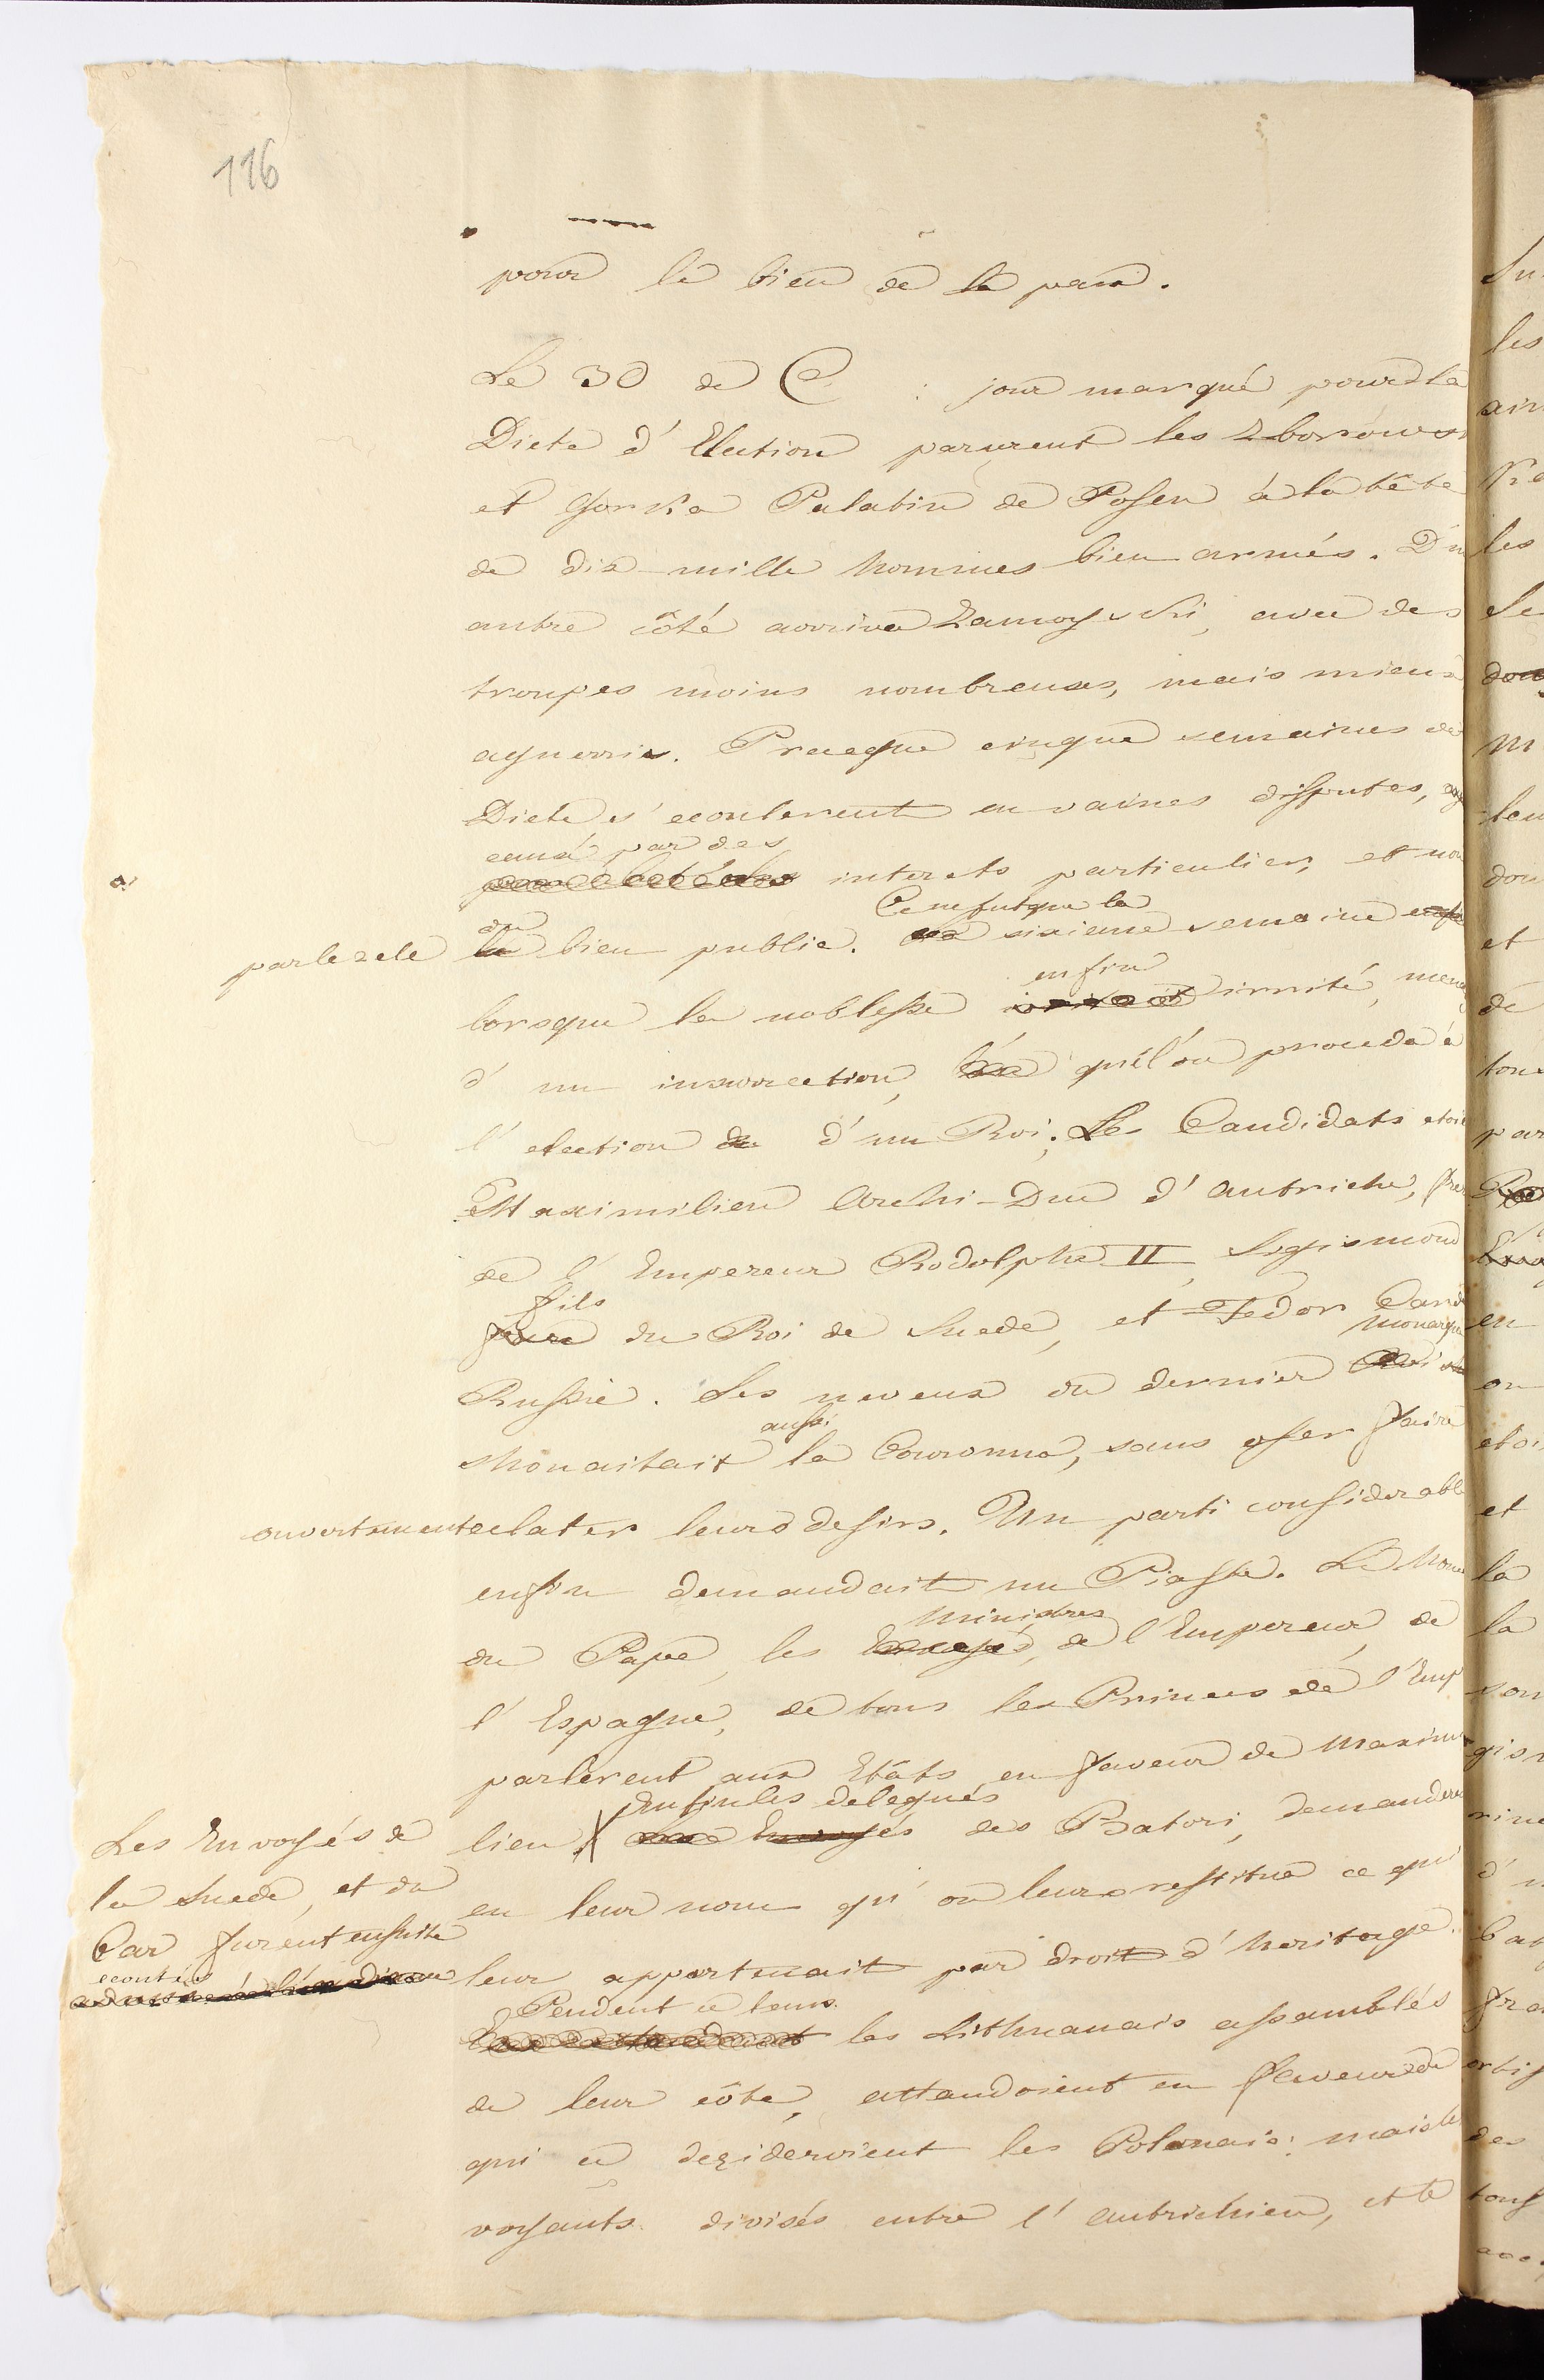 116
pour le bien de la paix.
Le 30 de : jour marqué pour la
Diete d'Election parurent les Zborowski
et Gorka Palatin de Posen à la tête
de dix mille hommes bien armés. D'un
autre côté arriva Zamoyski, avec des
troupes moins nombreuses, mais mieux
aguerris. Presque cinque semaines de
Diete s'ecoulerent en vaines disputes,
causé par des
interets particulier, et non
par le zele du bien public. Ce ne fut que la sixieme semaine
enfin
lorsque la noblesse irrité, mena
d'un insurrection, qu'l'on proceda à
l'election d'un Roi. Les Candidats etoi
Maximilien Archi-Duc d'Autriche, fre
de l'Empereur Rodolphe II, Sigismond
fils
du Roi de Suede, et Fedor Czar de
monarque
Russie. Les neveux du dernier
aussi
shouaitait la Couronne, sans oser faire
ouvertement eclater leurs desirs. Un parti considerable
enfin demandait un Piaste. Le Nonce
ministres
du Pape, les de l'Empereur, de
l'Espagne, de tous les Princes de l'Emp
parlerent aux Etâts en faveur de Maximi
Enfin les delegués
lien X des Batori, demandere
Les Envoyés de
la Suede, et du
Czar furent ensuite
ecoutés
en leur nom qu'on leurs restitue ce qui
leur appartenait par droit d'heritage.
Pendent ce tems
les Lithuanais assamblés
de leur côte, attandoient en faveur de
qui ce dezidervient les Polonais: mais les
voyants divisés entre l'Autrichien, et le